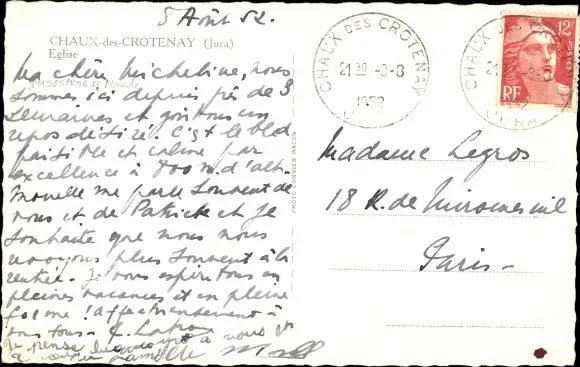 8 Août 52.
CHAUX-des-CROTENAY (Jura)
Eglise
Ma chère Micheline, nous
sommes ici depuis près de 3
semaines et goûtons un
repos désiré. C'est le bled
paisible et calme par
excellence à 800 m. d'alt.
me parle souvent de
vous et de Patrick et je
souhaite que nous nous
voyons plus souvent à la
rentrée. Je vous espère tous en
pleines vacances et en pleine
forme! affectueusement à
vous tous -
Je pense beaucoup à vous et
à votre famille
PHOTO COMBIER MACON
CHAUX DES CROTENAY
21 30 -8-8
1952
CHAUX DES CROTENAY
JURA
12F
POSTES
RF
Madame Legros
18 R. de Miromesnil
Paris -